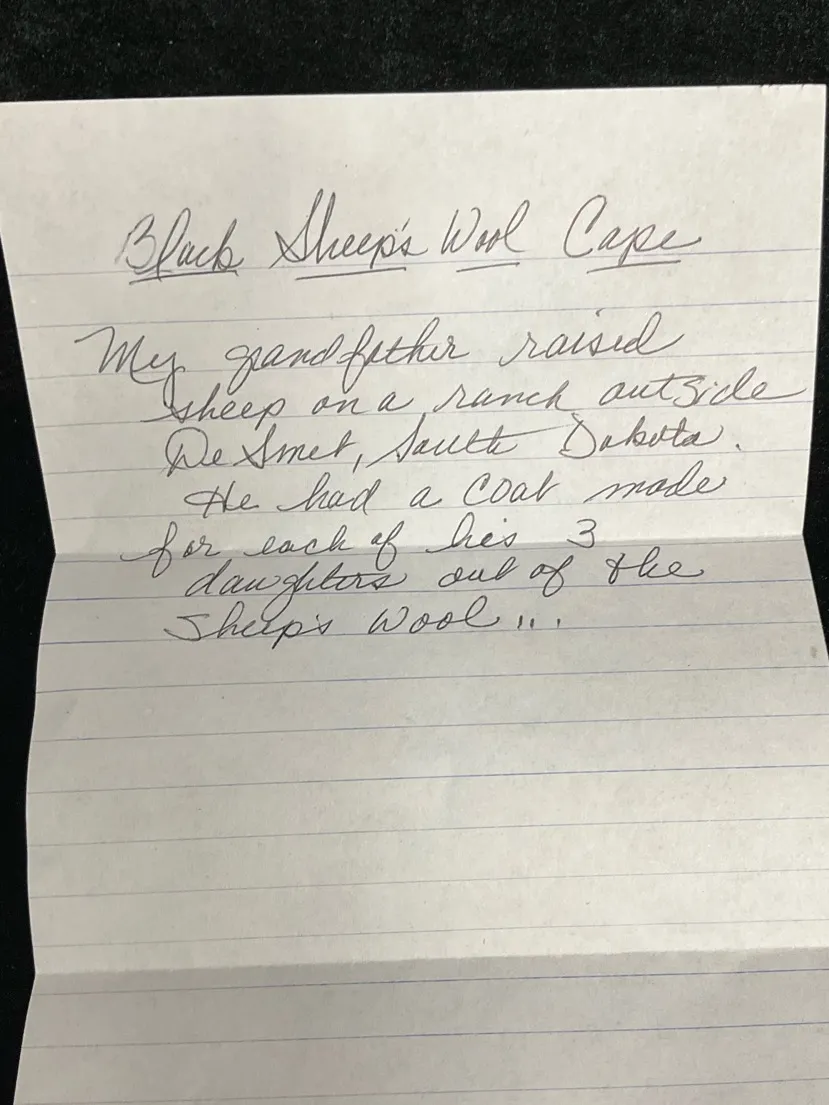 Black Sheep's Wool Cape
My grandfather raised
sheep on a ranch outside
De Smet, South Dakota.
He had a coat made
for each of his 3
daughters out of the
Sheep's Wool...